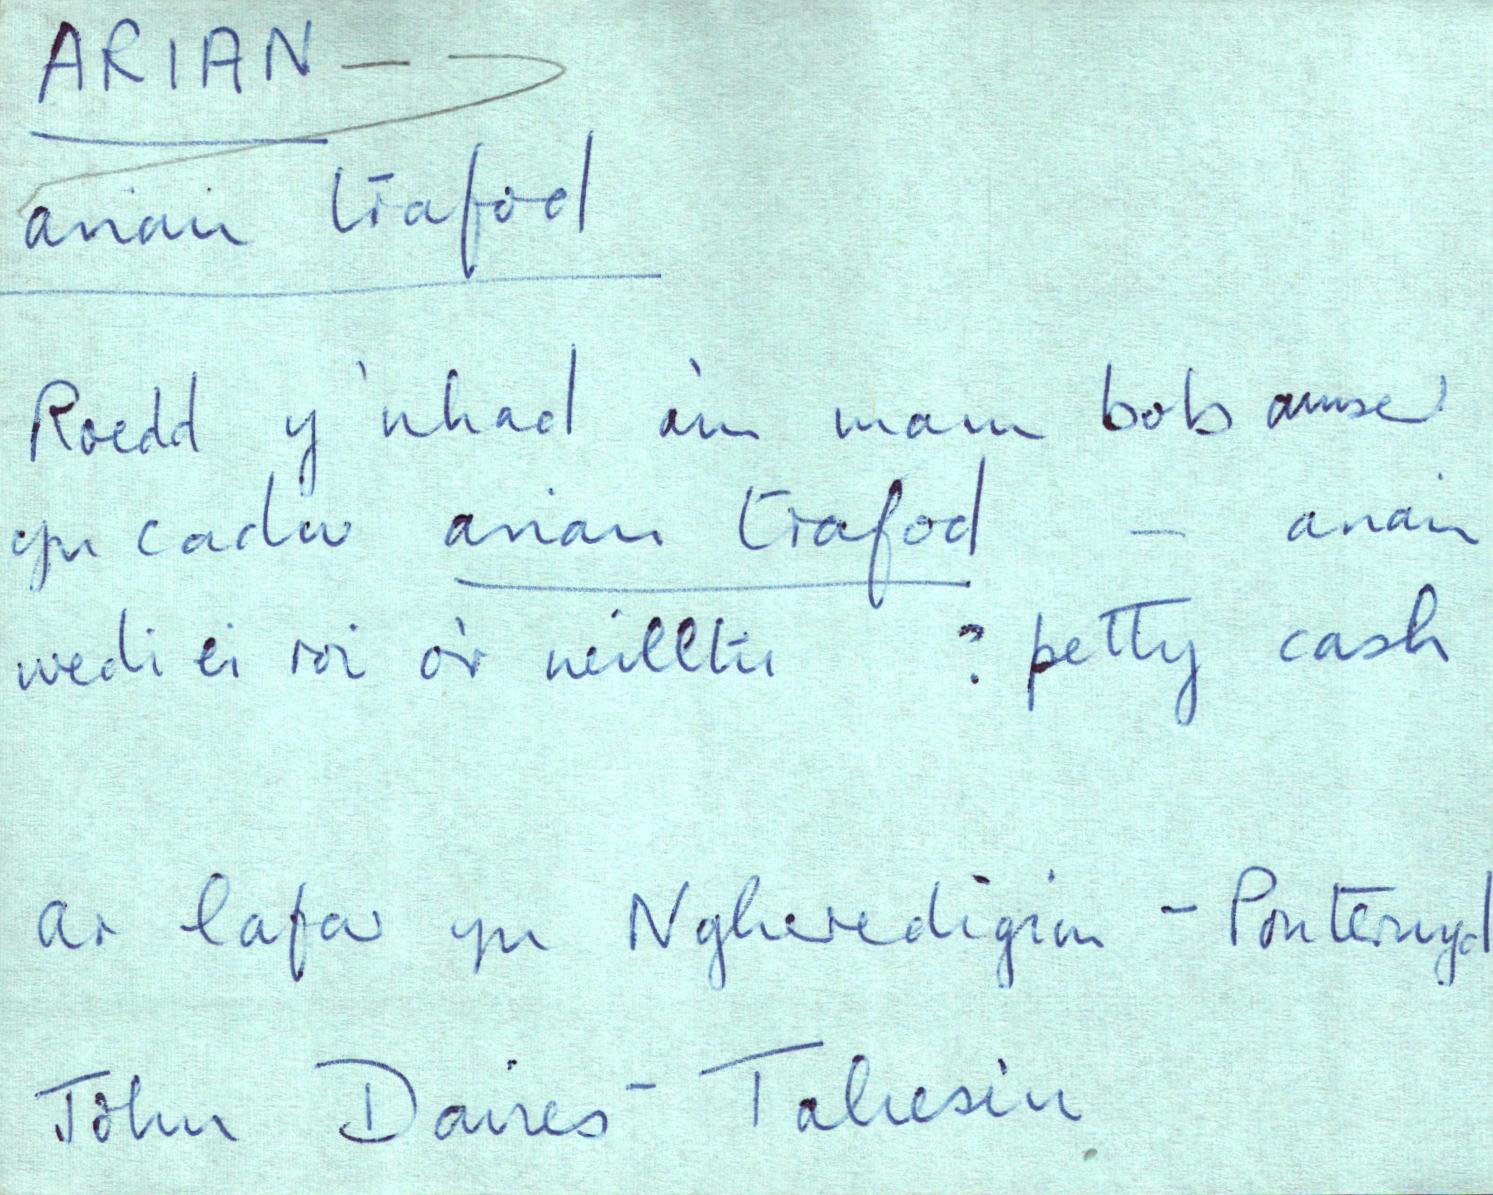 ARIAN —
arian trafod
Roedd y'nhad a'm mam bob amser
yn cadw arian trafod — arian
wedi ei roi o'r neilltu ? petty cash
ar lafar yn Ngheredigion - Ponterwyd
John Davies - Taliesin